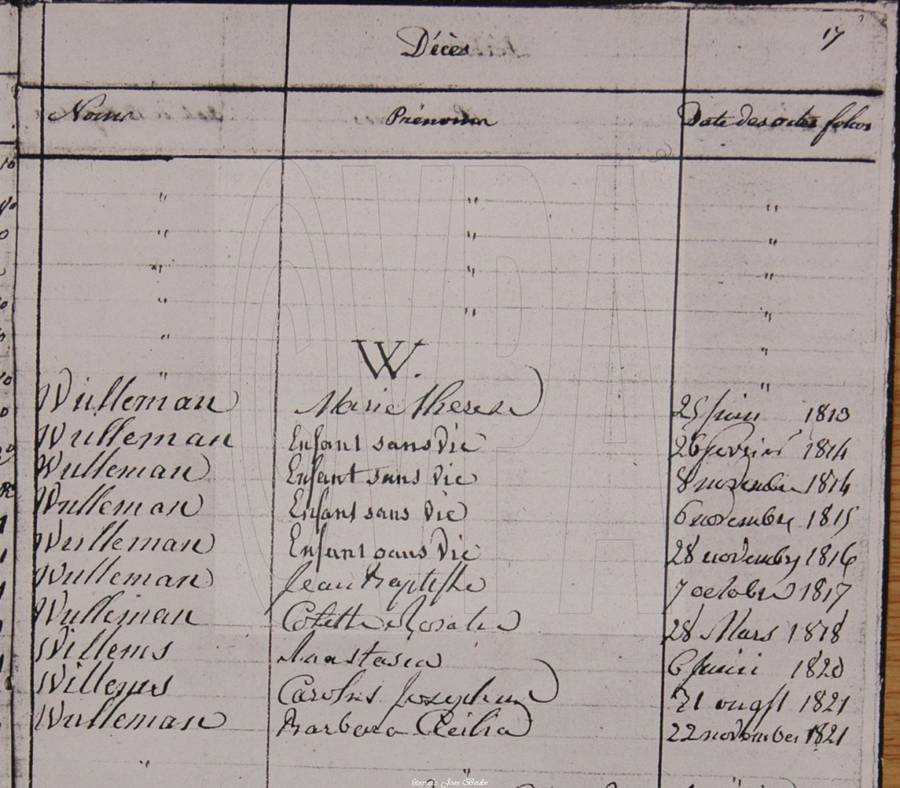 Décès 17
Noms Prénoms Date des actes folios
" " "
" " "
" " "
" " "
" "
W.
" "
Wulleman Marie Therese 25 juin 1813
Wulleman Enfant sans Vie 26 fevrier 1814
Wulleman Enfant sans Vie 8 novembre 1814
Wulleman Enfant sans Vie 6 novembre 1815
Wulleman Enfant sans Vie 28 novembre 1816
Wulleman Jean Baptiste 7 octobre 1817
Wulleman Colette Rosalie 28 Mars 1818
Willems Anastasia 6 juin 1820
Willems Carolus Josephus 21 ougst 1821
Wulleman Barbara Cecilia 22 november 1821
" " "